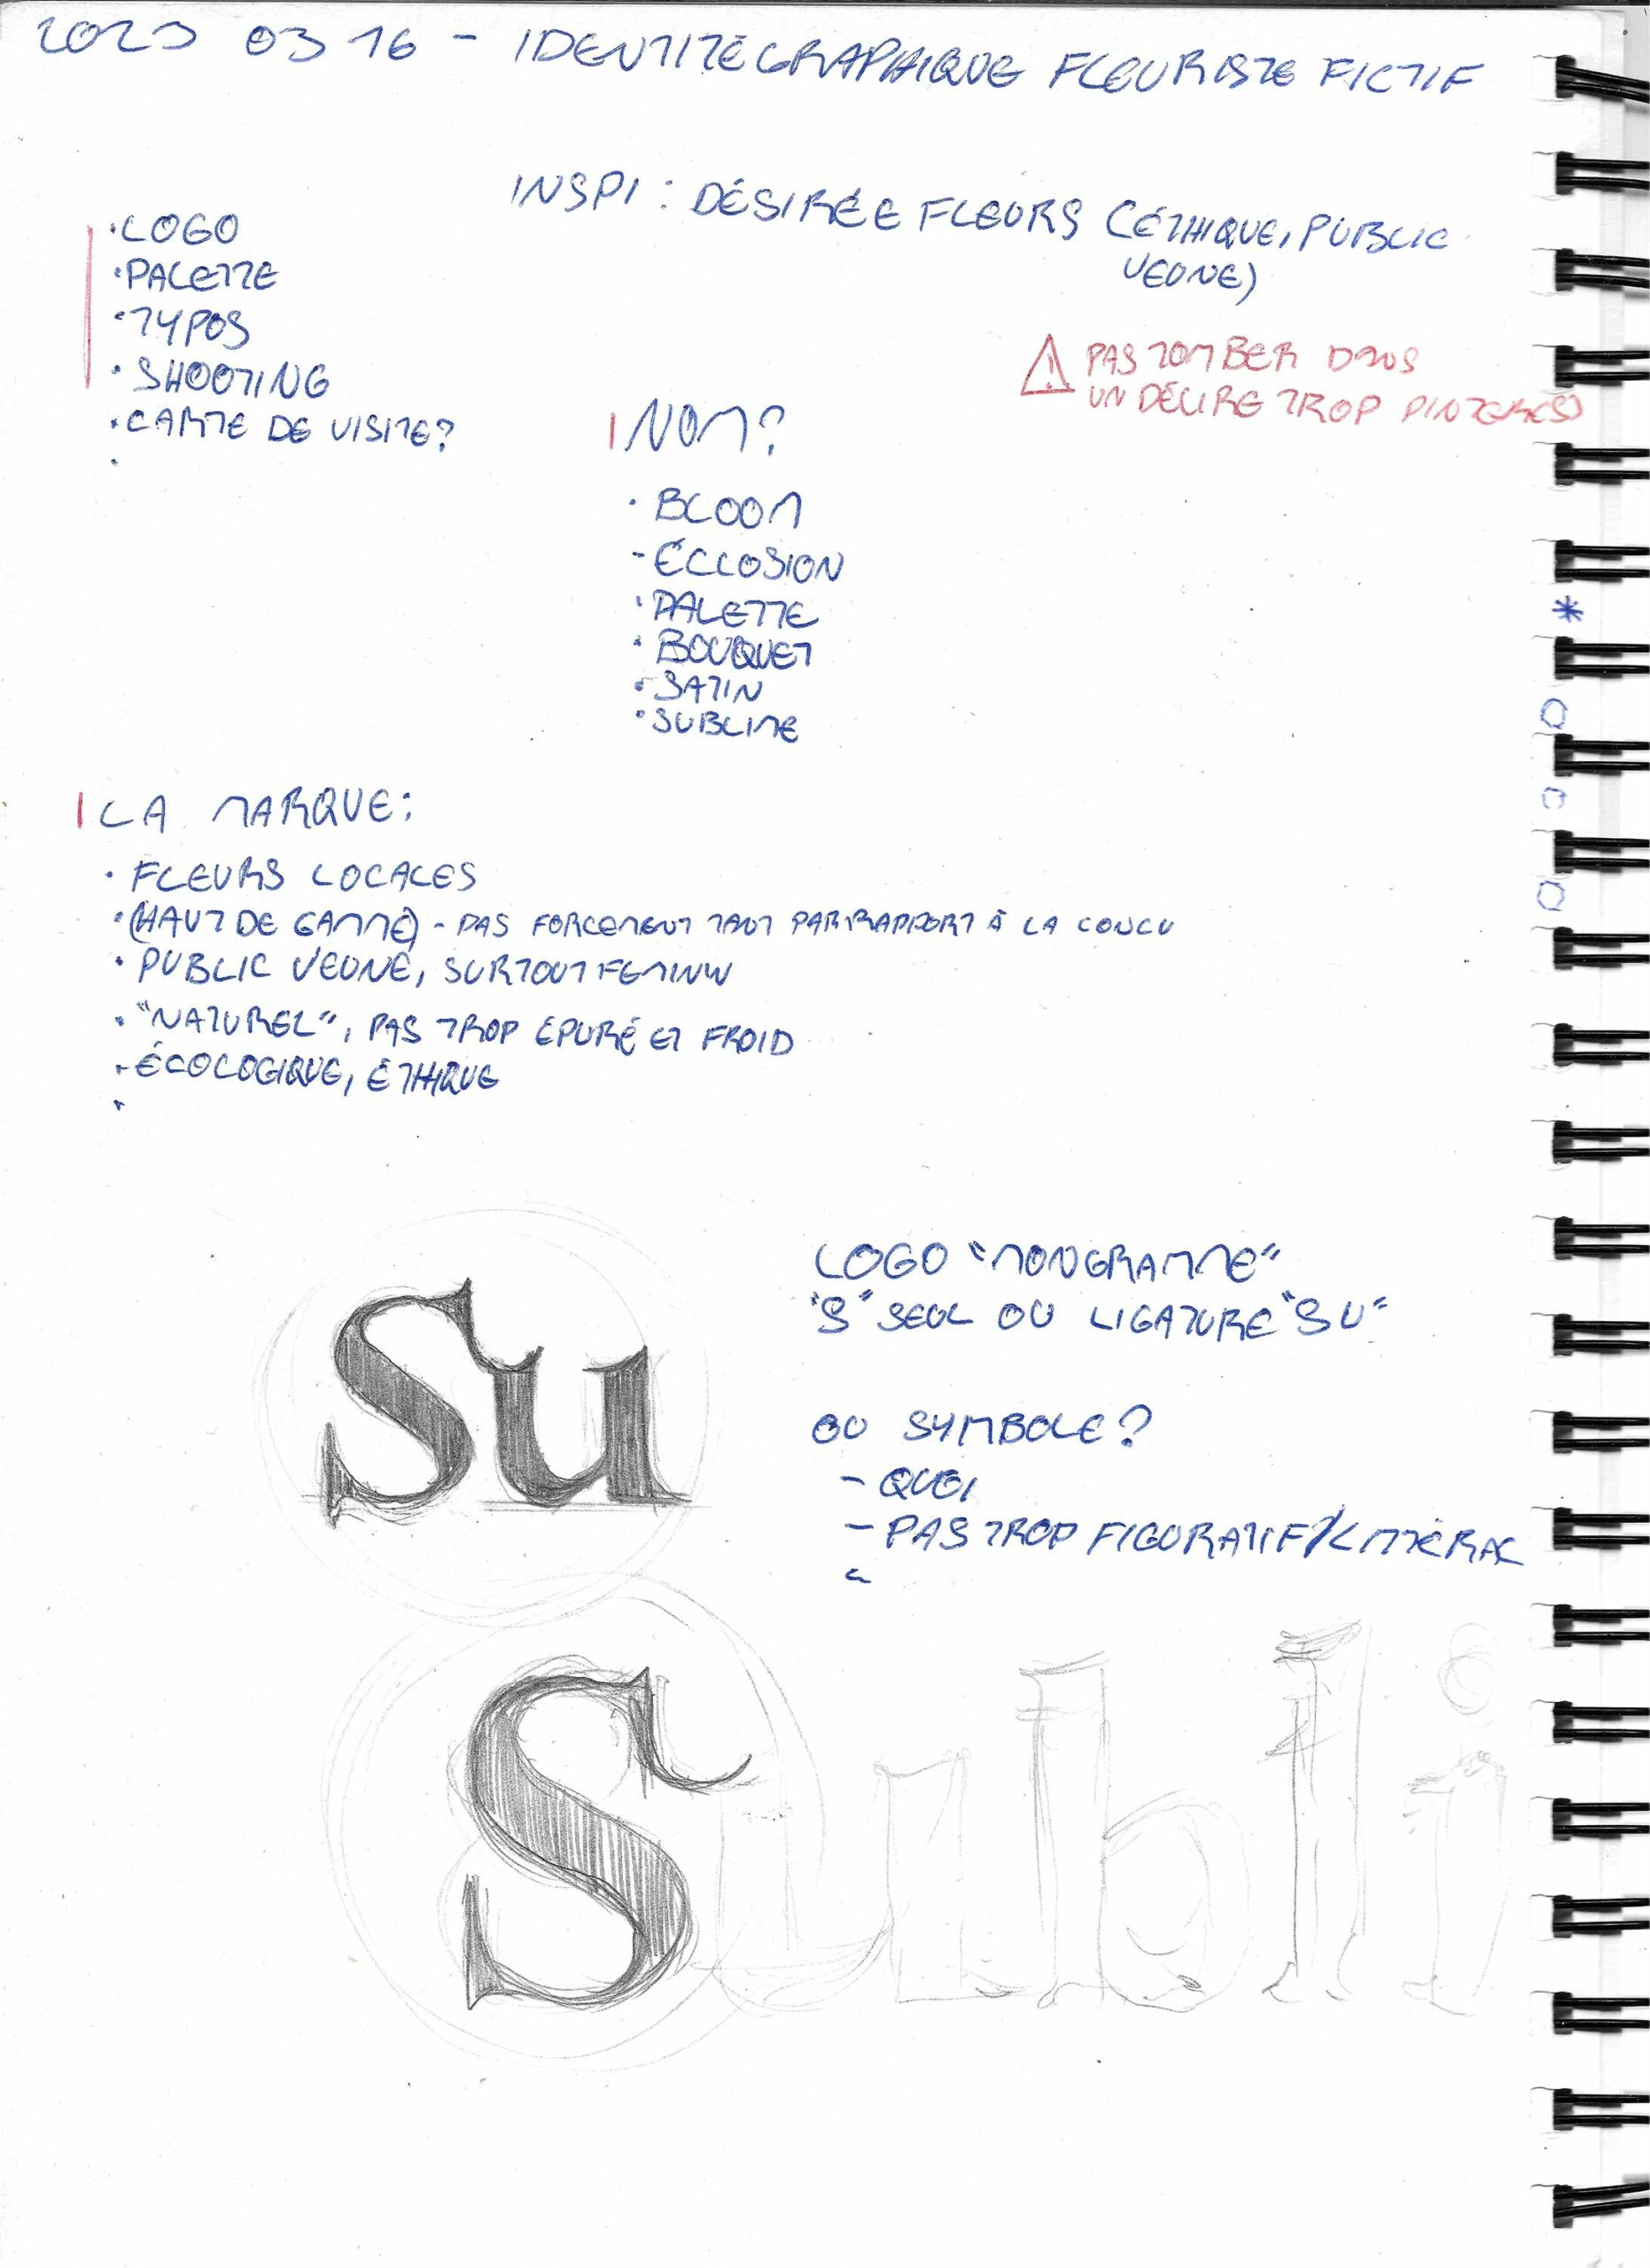 2023 03 16 - IDENTITÉ GRAPHIQUE FLEURISTE FICTIF
INSPI : DÉSIRÉE FLEURS (ÉTHIQUE, PUBLIC
JEUNE)
• LOGO
• PALETTE
• TYPOS
• SHOOTING
• CARTE DE VISITE?
•
⚠ PAS TOMBER DANS
UN DÉLIRE TROP PINTEREST
NOM?
• BLOOM
- ÉCLOSION
• PALETTE
• BOUQUET
• SATIN
• SUBLIME
LA MARQUE:
• FLEURS LOCALES
• (HAUT DE GAMME) - PAS FORCEMENT TANT PAR RAPPORT À LA CONCU
• PUBLIC JEUNE, SURTOUT FEMININ
• "NATUREL", PAS TROP ÉPURÉ ET FROID
- ÉCOLOGIQUE, ÉTHIQUE
•
Su
LOGO "MONOGRAMME"
"S" SEUL OU LIGATURE "SU"
OU SYMBOLE?
- QUOI
- PAS TROP FIGURATIF/LITTÉRAL
-
Subli